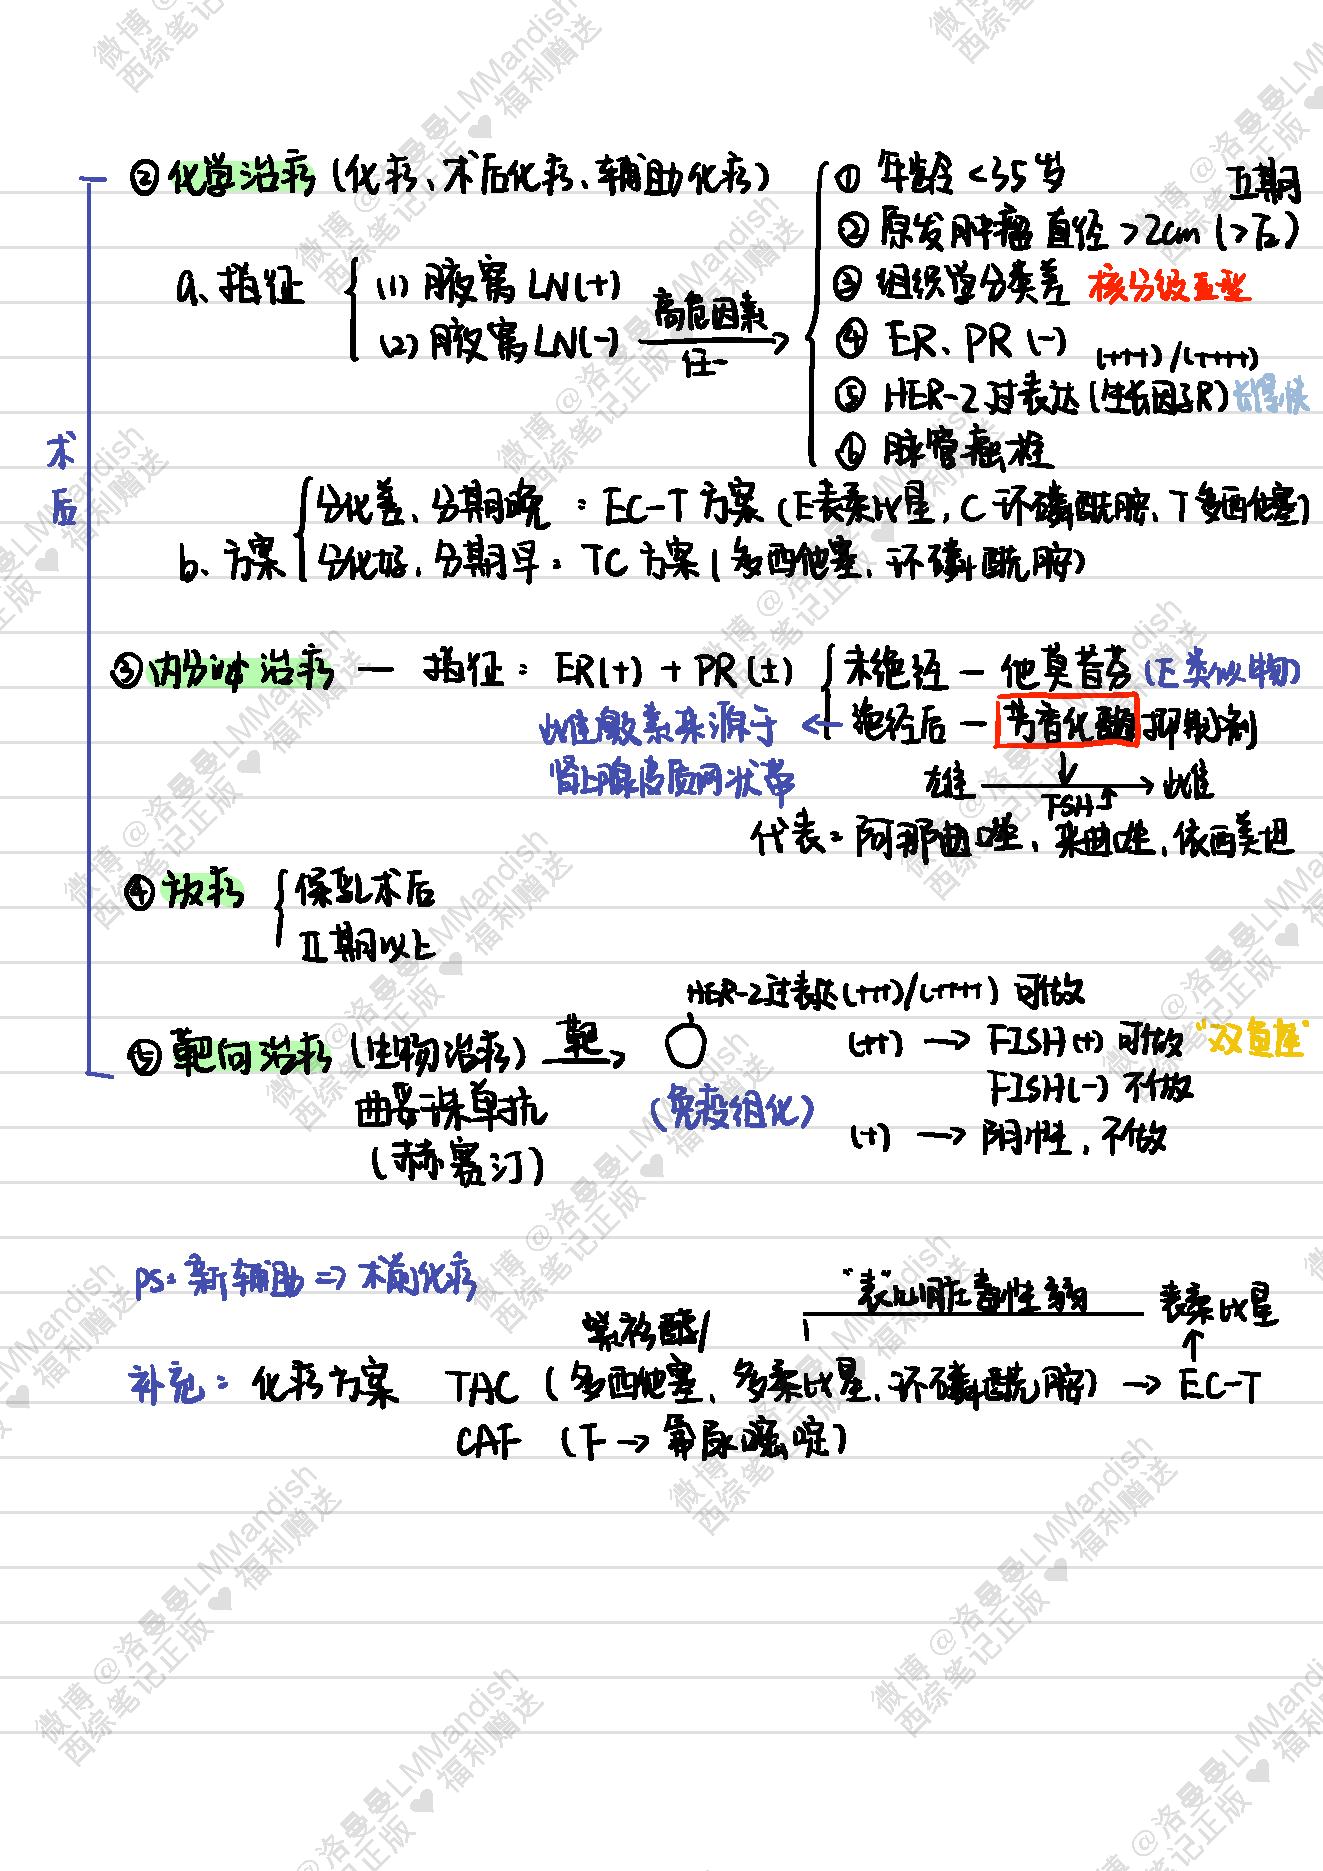 ②化学治疗（化疗、术后化疗、辅助化疗）
a、指征
(1) 腋窝LN(+)
(2) 腋窝LN(-)
高危因素
任一
① 年龄<35岁
Ⅱ期
② 原发肿瘤直径>2cm (>T2)
③ 组织学分类差 核分级Ⅲ型
④ ER、PR (-)
(+++)/(++++)
⑤ HER-2过表达(生长因子R) 长得快
⑥ 脉管癌栓
术后
b、方案
分化差、分期晚：EC-T方案(E表柔比星,C环磷酰胺、T多西他塞)
分化好、分期早：TC方案(多西他塞、环磷酰胺)
③内分泌治疗 — 指征：ER(+) + PR(±)
未绝经 — 他莫昔芬 (E类似物)
绝经后 — 芳香化酶抑制剂
雌激素来源于
肾上腺皮质网状带
雄 → 雌
FSH
代表：阿那曲唑、来曲唑,依西美坦
④放疗
保乳术后
Ⅱ期以上
⑤靶向治疗(生物治疗) 靶
曲妥珠单抗
(赫赛汀)
(免疫组化)
HER-2过表达(+++)/(++++) 可做
(++) → FISH(+) 可做 “双鱼座”
FISH(-) 不做
(+) → 阴性,不做
ps：新辅助 => 术前化疗
“表”心脏毒性弱
表柔比星
紫杉醇/
补充：化疗方案 TAC (多西他塞、多柔比星、环磷酰胺) → EC-T
CAF (F → 氟尿嘧啶)
微博@洛曼曼LMMandish
西综笔记正版♥福利赠送